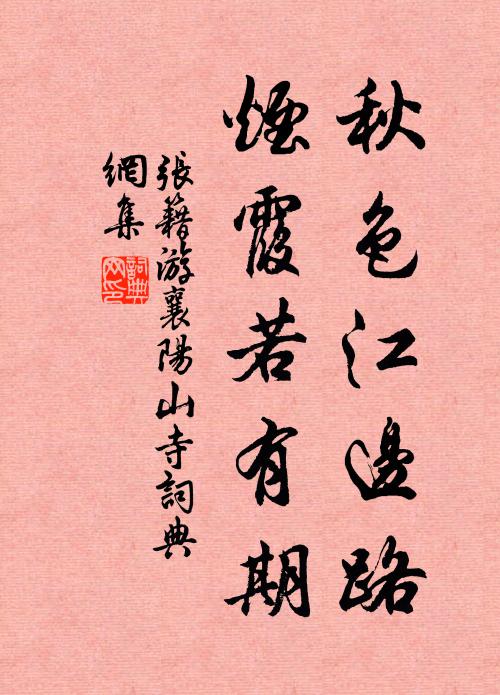 秋色江邊路
煙霞若有期
張籍游襄陽山寺詞典
網集
詞典
网印